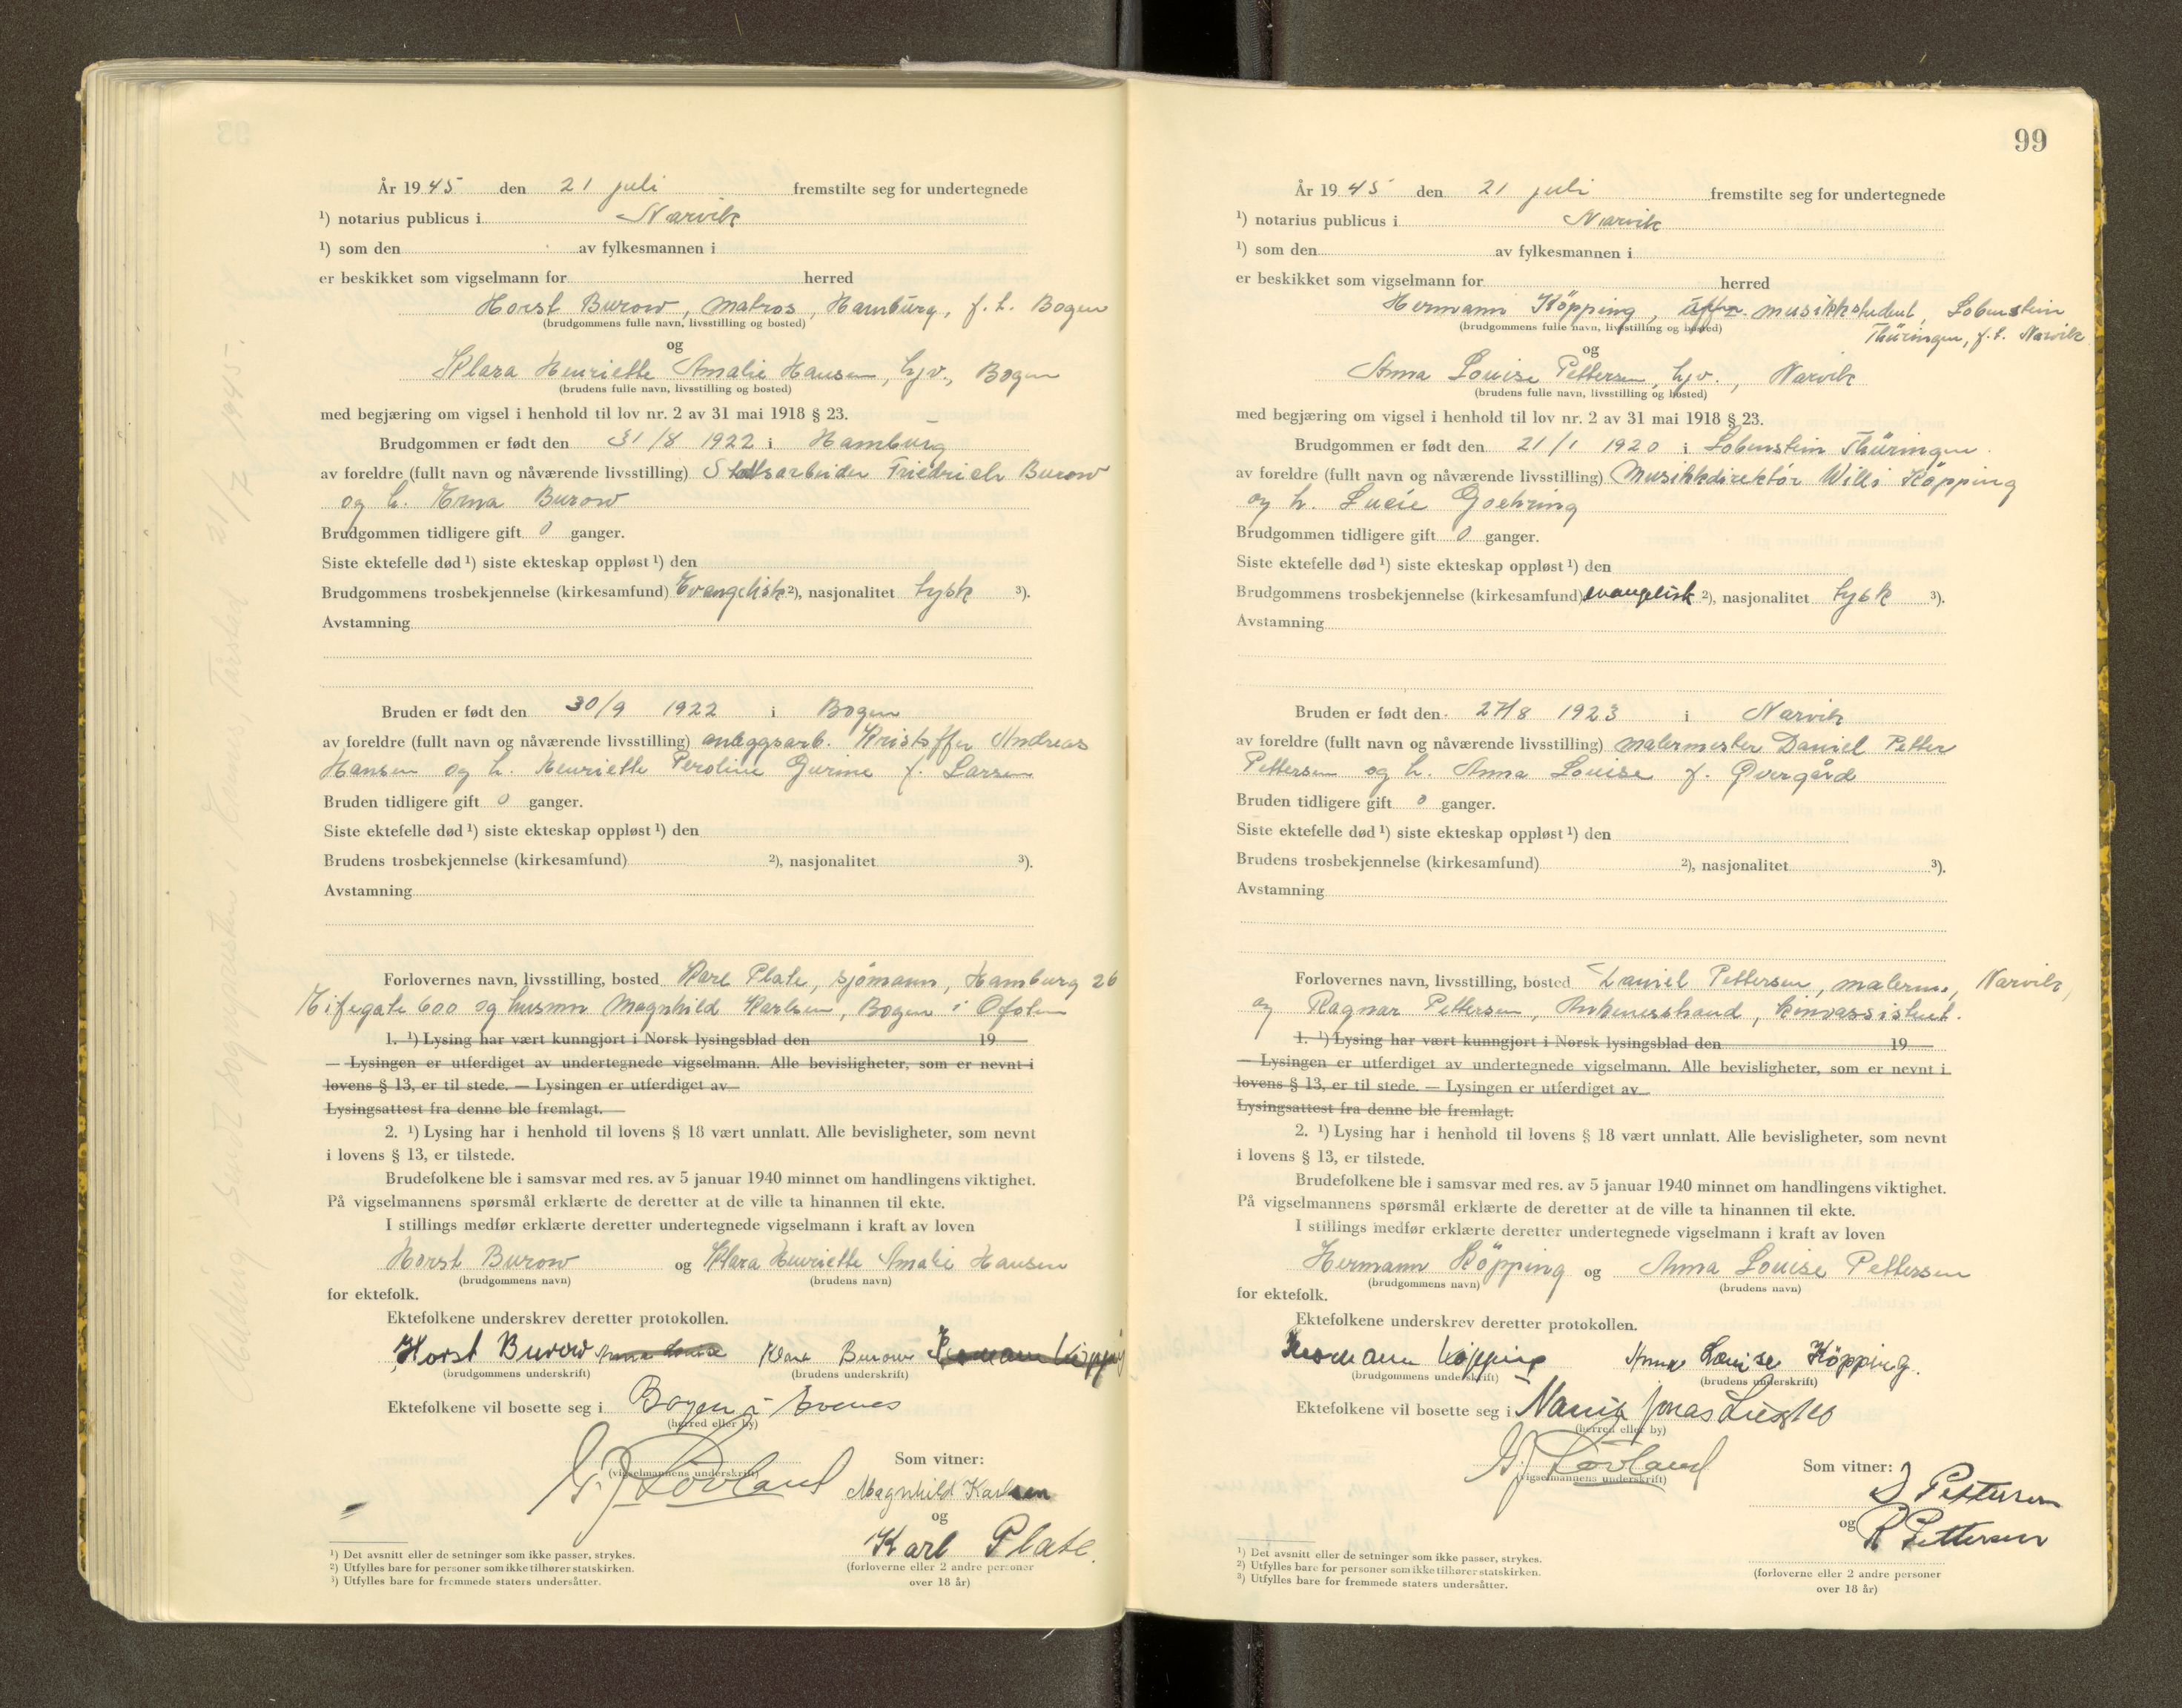 År 1945 den 21 juli fremstilte seg for undertegnede
¹) notarius publicus i Narvik
¹) som den av fylkesmannen i
er beskikket som vigselmann for herred
Horst Burow, matros, Hamburg, f.t. Bogen
(brudgommens fulle navn, livsstilling og bosted)
og
Klara Henriette Amalie Hansen, hjv., Bogen
(brudens fulle navn, livsstilling og bosted)
med begjæring om vigsel i henhold til lov nr. 2 av 31 mai 1918 § 23.
Brudgommen er født den 31/8 1922 i Hamburg
av foreldre (fullt navn og nåværende livsstilling) Statsarbeider Friedrich Burow
og h. Erna Burow
Brudgommen tidligere gift 0 ganger.
Siste ektefelle død ¹) siste ekteskap oppløst ¹) den
Brudgommens trosbekjennelse (kirkesamfund) Evangelisk ²), nasjonalitet tysk ³).
Avstamning
Bruden er født den 30/9 1922 i Bogen
av foreldre (fullt navn og nåværende livsstilling) anleggsarb. Kristoffer Andreas
Hansen og h. Henriette Peroline Gurine f. Larsen
Bruden tidligere gift 0 ganger.
Siste ektefelle død ¹) siste ekteskap oppløst ¹) den
Brudens trosbekjennelse (kirkesamfund) ²), nasjonalitet ³).
Avstamning
Forlovernes navn, livsstilling, bosted Karl Plate, sjømann, Hamburg 26
600 og husmor Magnhild Karlsen, Bogen i Ofoten
1. ¹) Lysing har vært kunngjort i Norsk lysingsblad den 19
— Lysingen er utferdiget av undertegnede vigselmann. Alle bevisligheter, som er nevnt i
lovens § 13, er til stede. — Lysingen er utferdiget av
Lysingsattest fra denne ble fremlagt.
2. ¹) Lysing har i henhold til lovens § 18 vært unnlatt. Alle bevisligheter, som nevnt
i lovens § 13, er tilstede.
Brudefolkene ble i samsvar med res. av 5 januar 1940 minnet om handlingens viktighet.
På vigselmannens spørsmål erklærte de deretter at de ville ta hinannen til ekte.
I stillings medfør erklærte deretter undertegnede vigselmann i kraft av loven
Horst Burow og Klara Henriette Amalie Hansen
(brudgommens navn) (brudens navn)
for ektefolk.
Ektefolkene underskrev deretter protokollen.
Horst Burow Anna Louise Klara Burow Hermann Köpping
(brudgommens underskrift) (brudens underskrift)
Ektefolkene vil bosette seg i Bogen i Evenes
(herred eller by)
G. J. Løvland
(vigselmannens underskrift)
Som vitner:
Magnhild Karlsen
og
Karl Plate.
(forloverne eller 2 andre personer
over 18 år)
¹) Det avsnitt eller de setninger som ikke passer, strykes.
²) Utfylles bare for personer som ikke tilhører statskirken.
³) Utfylles bare for fremmede staters undersåtter.
Melding sendt sogypresten i 21/7 1945.
99
År 1945 den 21 juli fremstilte seg for undertegnede
¹) notarius publicus i Narvik
¹) som den av fylkesmannen i
er beskikket som vigselmann for herred
Hermann Köpping, uffz. musikkstudent, Lobenstein
(brudgommens fulle navn, livsstilling og bosted)
Thüringen, f.t. Narvik
og
Anna Louise Pettersen, hjv., Narvik
(brudens fulle navn, livsstilling og bosted)
med begjæring om vigsel i henhold til lov nr. 2 av 31 mai 1918 § 23.
Brudgommen er født den 21/1 1920 i Lobenstein Thüringen
av foreldre (fullt navn og nåværende livsstilling) Musikkdirektør Willi Köpping
og h. Lucie Goehring
Brudgommen tidligere gift 0 ganger.
Siste ektefelle død ¹) siste ekteskap oppløst ¹) den
Brudgommens trosbekjennelse (kirkesamfund) evangelisk ²), nasjonalitet tysk ³).
Avstamning
Bruden er født den 27/8 1923 i Narvik
av foreldre (fullt navn og nåværende livsstilling) malermester Daniel Petter
Pettersen og h. Anna Louise f. Øvergård
Bruden tidligere gift 0 ganger.
Siste ektefelle død ¹) siste ekteskap oppløst ¹) den
Brudens trosbekjennelse (kirkesamfund) ²), nasjonalitet ³).
Avstamning
Forlovernes navn, livsstilling, bosted Daniel Pettersen, malerm., Narvik,
og Ragnar Pettersen, Ankenesstrand, kinoassistent.
1. ¹) Lysing har vært kunngjort i Norsk lysingsblad den 19
— Lysingen er utferdiget av undertegnede vigselmann. Alle bevisligheter, som er nevnt i
lovens § 13, er til stede. — Lysingen er utferdiget av
Lysingsattest fra denne ble fremlagt.
2. ¹) Lysing har i henhold til lovens § 18 vært unnlatt. Alle bevisligheter, som nevnt
i lovens § 13, er tilstede.
Brudefolkene ble i samsvar med res. av 5 januar 1940 minnet om handlingens viktighet.
På vigselmannens spørsmål erklærte de deretter at de ville ta hinannen til ekte.
I stillings medfør erklærte deretter undertegnede vigselmann i kraft av loven
Hermann Köpping og Anna Louise Pettersen
(brudgommens navn) (brudens navn)
for ektefolk.
Ektefolkene underskrev deretter protokollen.
Hermann Köpping Anna Louise Köpping.
(brudgommens underskrift) (brudens underskrift)
Ektefolkene vil bosette seg i Narvik Jonas Liesgt
(herred eller by)
G. J. Løvland
(vigselmannens underskrift)
Som vitner:
D Pettersen
og R Pettersen
(forloverne eller 2 andre personer
over 18 år)
¹) Det avsnitt eller de setninger som ikke passer, strykes.
²) Utfylles bare for personer som ikke tilhører statskirken.
³) Utfylles bare for fremmede staters undersåtter.